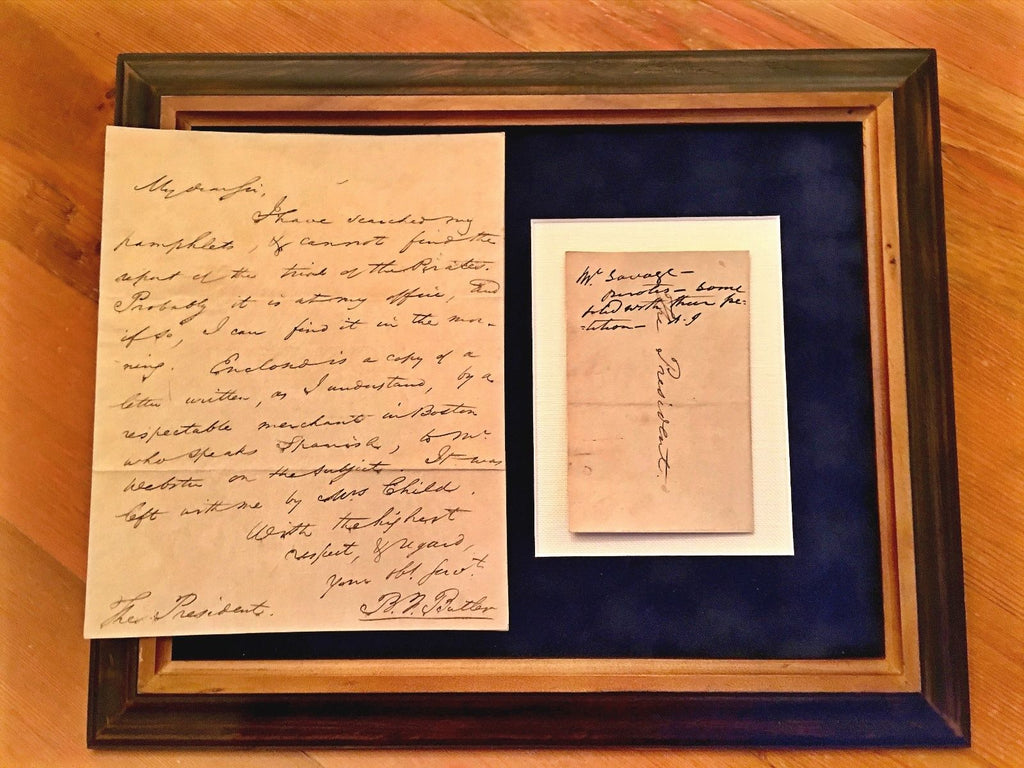 My dear Sir,
I have searched my
pamphlets, & cannot find the
report of the trial of the Pirates.
Probably it is at my office, and
if so, I can find it in the mor-
ning. Enclosed is a copy of a
letter written, as I understand, by a
respectable merchant in Boston
who speaks Spanish, to Mr
Webster on the subject. It was
left with me by Mrs Child.
With the highest
respect, & regard,
your obt. Servt.
B. F. Butler
The President.
Mr Savage—
Pirates— some
filed with their pe-
-tition— A. J
The President.